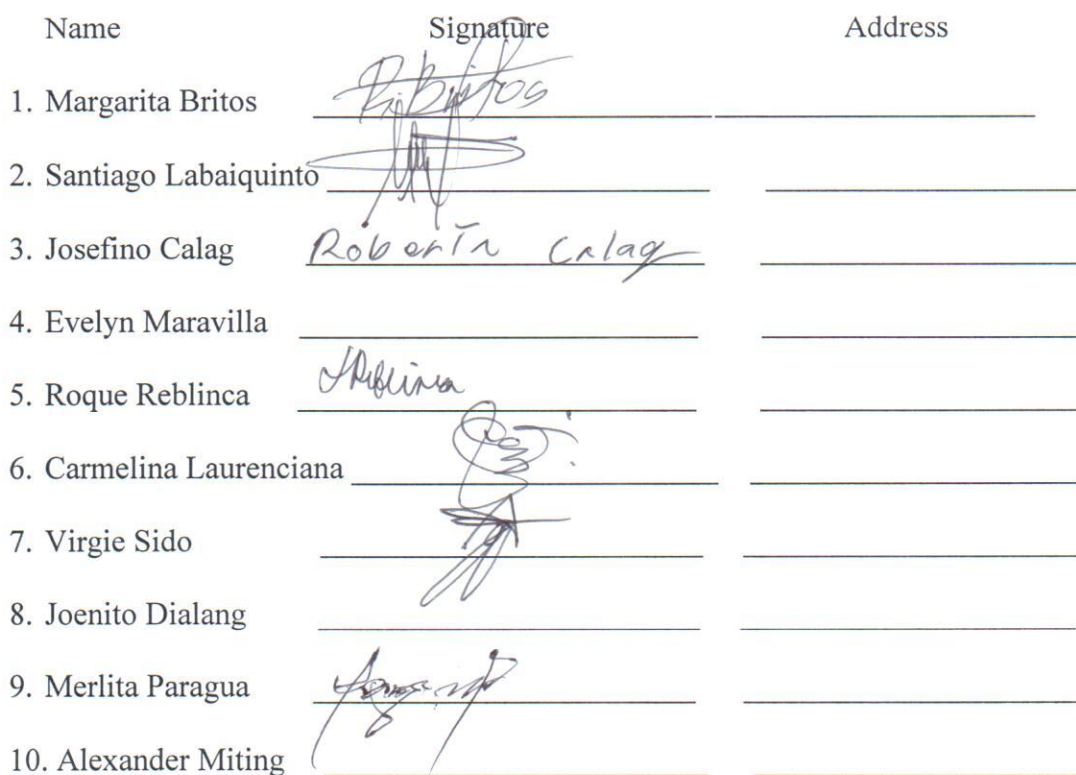 Name Signature Address
1. Margarita Britos Britos
2. Santiago Labaiquinto
3. Josefino Calag Calag
4. Evelyn Maravilla
5. Roque Reblinca
6. Carmelina Laurenciana
7. Virgie Sido
8. Joenito Dialang
9. Merlita Paragua
10. Alexander Miting